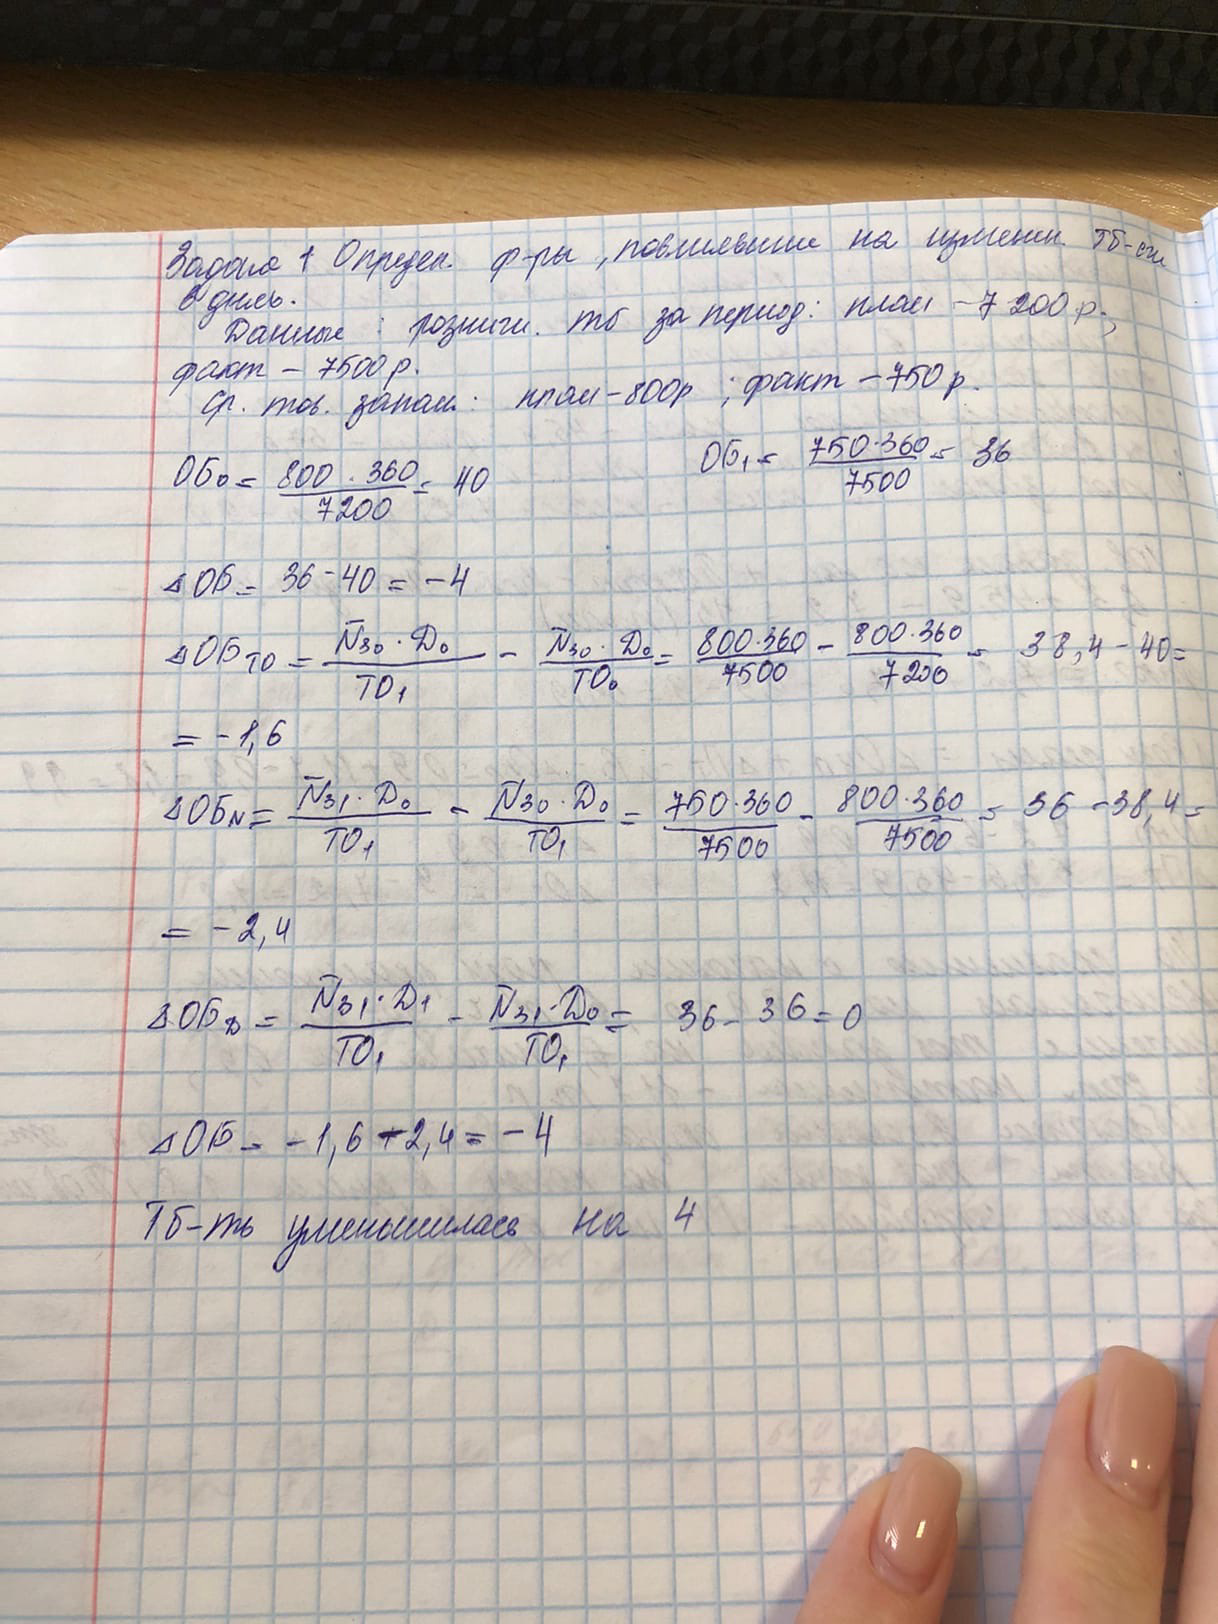 Задача 1 Опредеп. ф-ры, повлиявшие на изменен. Тб-сти
в днях.
Данные: рознич. тб за период: план – 7 200 р.;
факт – 7500 р.
Ср. тов. запасы: план – 800р; факт – 750 р.
ОБ₀ = 800 · 360 / 7200 = 40 ОБ₁ = 750 · 360 / 7500 = 36
Δ ОБ = 36 - 40 = -4
Δ ОБ ТО = N̄З₀ · Д₀ / ТО₁ - N̄З₀ · Д₀ / ТО₀ = 800 · 360 / 7500 - 800 · 360 / 7200 = 38,4 - 40 =
= -1,6
Δ ОБN = N̄З₁ · Д₀ / ТО₁ - N̄З₀ · Д₀ / ТО₁ = 750 · 360 / 7500 - 800 · 360 / 7500 = 36 - 38,4 =
= -2,4
Δ ОБД = N̄З₁ · Д₁ / ТО₁ - N̄З₁ · Д₀ / ТО₁ = 36 - 36 = 0
Δ ОБ = -1,6 - 2,4 = -4
Тб-ть уменьшилась на 4